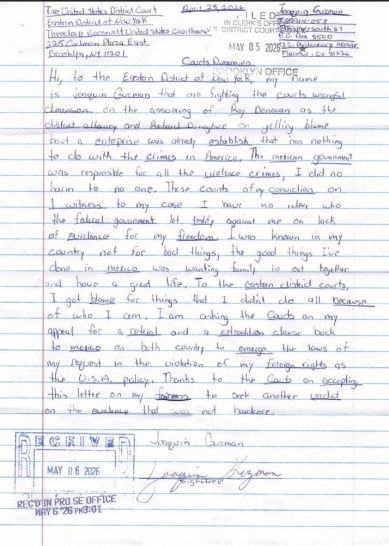 The United States District Court
Eastern District of New York
Theodore Roosevelt United States Courthouse
225 Cadman Plaza East
Brooklyn, NY 11201
April 23, 2026
Joaquin Guzman
P.O. Box 8500
Florence, Co 81226
FILED
IN CLERK'S OFFICE
US DISTRICT COURT
MAY 05 2026
BROOKLYN OFFICE
Courts Dimension
Hi, to the Eastern District of New York, my name
is Joaquin Guzman that are fighting the courts wrongful
on the assuming of Ray Donovan as the
district attorney and Richard Donoghue on yelling blame
bout a enterprise was already establish that has nothing
to do with the crimes in America. The mexican government
was responsible for all the violence crimes, I did no
harm to no one. These counts of my conviction on
1 witness to my case I have no idea who
the federal government let testify against me on lack
of evidence for my freedom. I was known in my
country not for bad things, the good things I've
done in mexico was wanting family to eat together
and have a good life. To the eastern district courts,
I got blame for things that I didn't do all because
of who I am. I am asking the Courts on my
appeal for a retrial and a extradition clause back
to mexico on both country to emerge the laws of
my request in the violation of my foreign rights as
the U.S.A. policy. Thanks to the Courts on accepting
this letter on my fairness to seek another verdict
on the evidence that was not
Joaquin Guzman
Joaquin Guzman
Signature
RECEIVED
MAY 06 2026
REC'D IN PRO SE OFFICE
MAY 6 '26 PM3:01